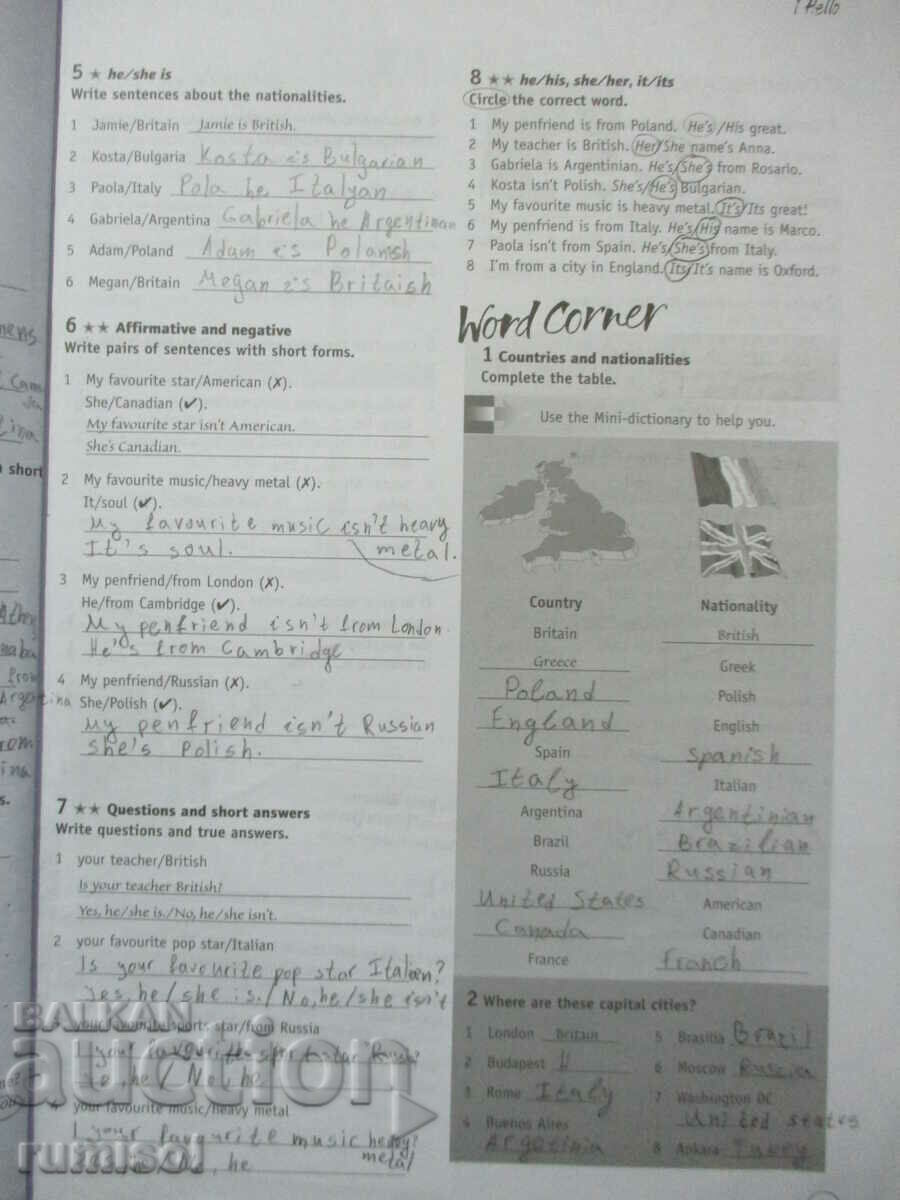 1 Hello
5 ★ he/she is
Write sentences about the nationalities.
1 Jamie/Britain Jamie is British.
2 Kosta/Bulgaria Kosta is Bulgarian
3 Paola/Italy Pola he Italyan
4 Gabriela/Argentina Gabriela he Argentinan
5 Adam/Poland Adam is Polansh
6 Megan/Britain Megan is Britaish
6 ★★ Affirmative and negative
Write pairs of sentences with short forms.
1 My favourite star/American (✗).
She/Canadian (✔).
My favourite star isn't American.
She's Canadian.
2 My favourite music/heavy metal (✗).
It/soul (✔).
My favourite music isn't heavy
It's soul. metal.
3 My penfriend/from London (✗).
He/from Cambridge (✔).
My penfriend isn't from London.
He's from Cambridge.
4 My penfriend/Russian (✗).
She/Polish (✔).
My penfriend isn't Russian
She's Polish.
7 ★★ Questions and short answers
Write questions and true answers.
1 your teacher/British
Is your teacher British?
Yes, he/she is./No, he/she isn't.
2 your favourite pop star/Italian
Is your favourite pop star Italian?
Yes, he/she is./No, he/she isn't
3 your favourite sports star/from Russia
4 your favourite music/heavy metal
I your favourite music heavy?
metal
8 ★★ he/his, she/her, it/its
Circle the correct word.
1 My penfriend is from Poland. He's/His great.
2 My teacher is British. Her/She name's Anna.
3 Gabriela is Argentinian. He's/She's from Rosario.
4 Kosta isn't Polish. She's/He's Bulgarian.
5 My favourite music is heavy metal. It's/Its great!
6 My penfriend is from Italy. He's/His name is Marco.
7 Paola isn't from Spain. He's/She's from Italy.
8 I'm from a city in England. Its/It's name is Oxford.
Word Corner
1 Countries and nationalities
Complete the table.
Use the Mini-dictionary to help you.
Country Nationality
Britain British
Greece Greek
Poland Polish
England English
Spain Spanish
Italy Italian
Argentina Argentinian
Brazil Brazilian
Russia Russian
United States American
Canada Canadian
France Franch
2 Where are these capital cities?
1 London Britain
2 Budapest H
3 Rome Italy
4 Buenos Aires
Argetinia
5 Brasilia Brazil
6 Moscow Russia
7 Washington DC
United states
8 Ankara
BALKAN
auction
rumisol